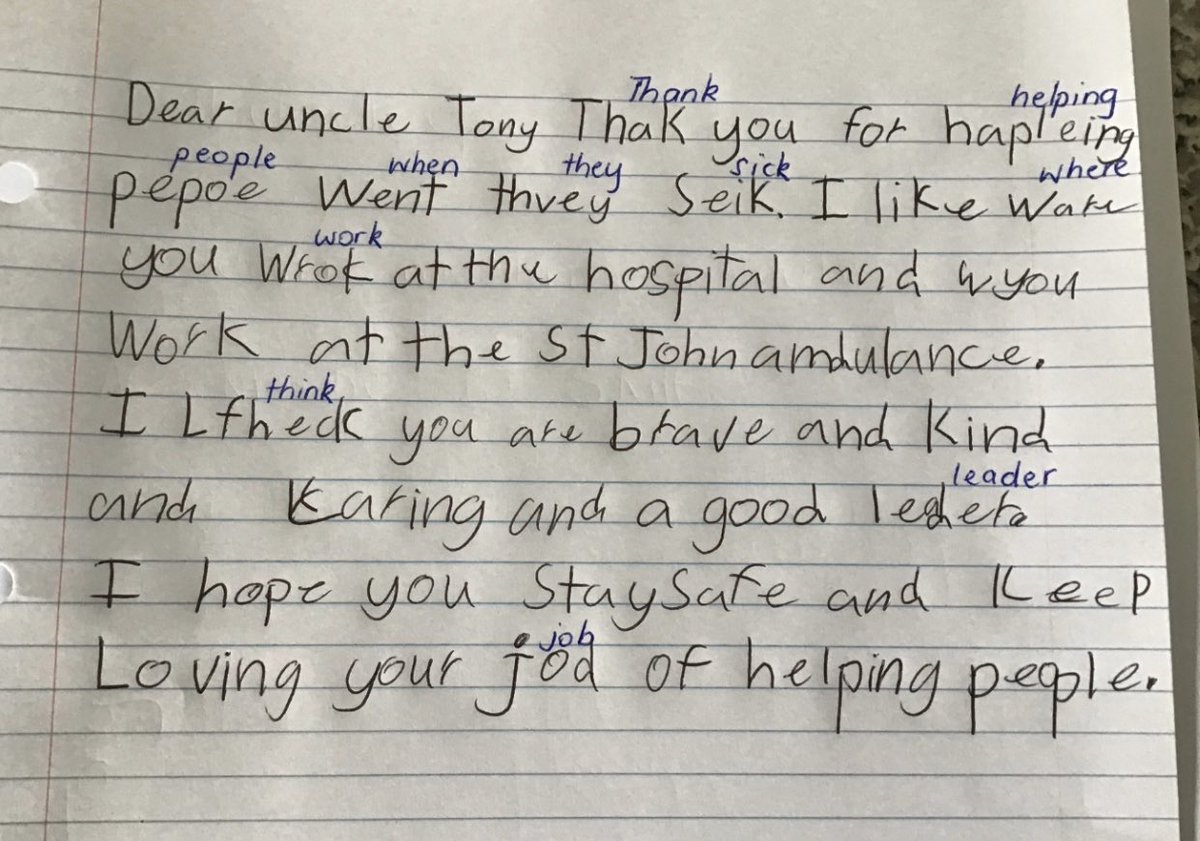 Thank helping
Dear uncle Tony Thak you for hapleing
people when they sick where
pepoe Went thvey Seik. I like Ware
work
you Wrok at the hospital and w you
Work at the St John amdulance.
think
I Lfheck you are brave and Kind
leader
and Karing and a good ledere
I hope you Stay Safe and Keep
job
Loving your jod of helping people.